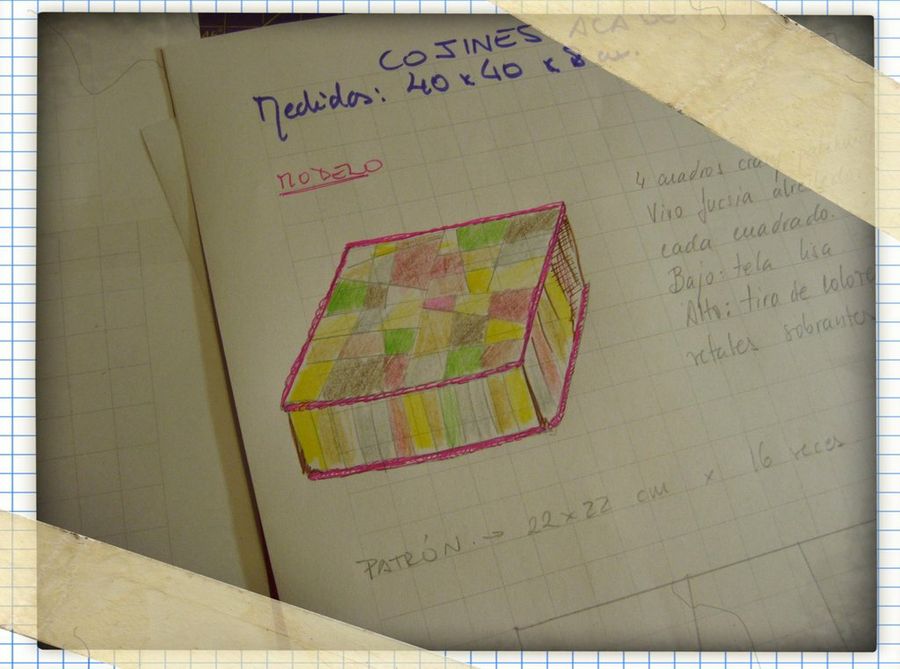 COJINES ACA
Medidas: 40 x 40 x 8 cm.
MODELO
4 cuadros
Vivo fucsia
cada cuadrado.
Bajo: tela lisa
Alto: tira de
retales sobrantes
PATRÓN → 22x22 cm x 16 veces